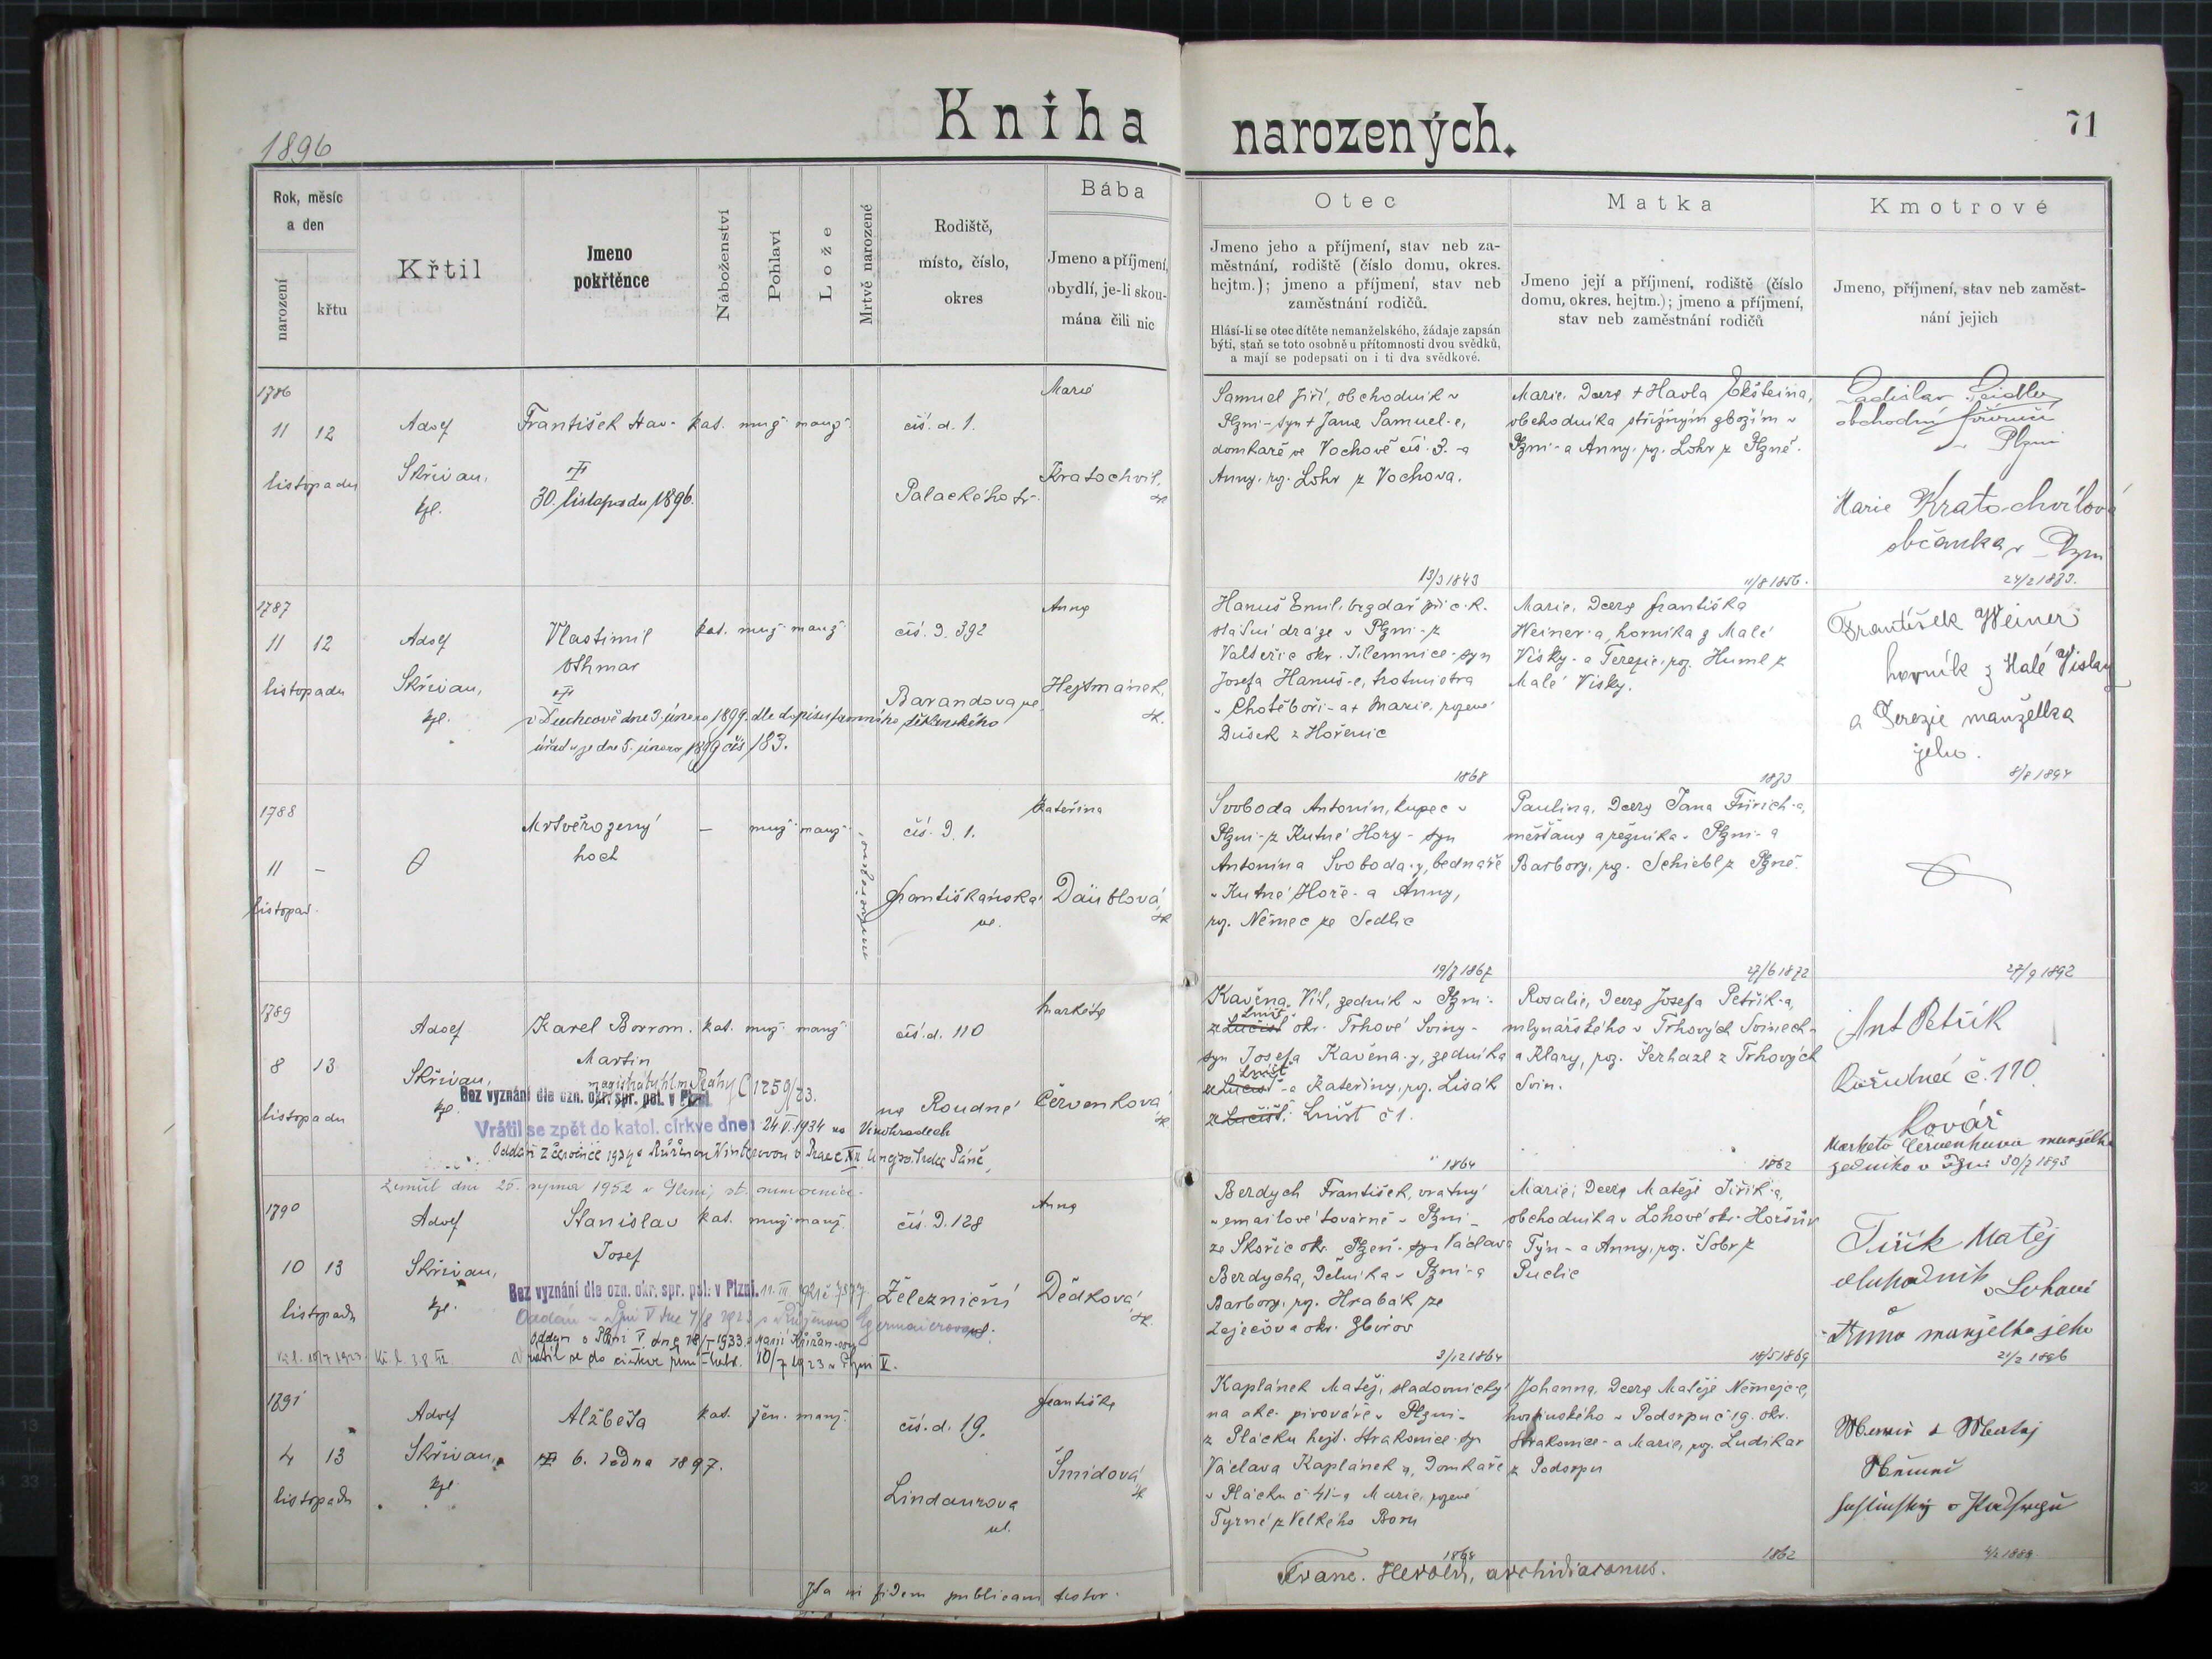 1896
Kniha
narozených.
71
Rok, měsíc
a den
narození
křtu
Křtil
Jmeno
pokřtěnce
Náboženství
Pohlaví
Lože
Mrtvě narozené
Rodiště,
místo, číslo,
okres
Bába
Jmeno a příjmení,
obydlí, je-li skou-
mána čili nic
Otec
Jmeno jeho a příjmení, stav neb za-
městnání, rodiště (číslo domu, okres.
hejtm.); jmeno a příjmení, stav neb
zaměstnání rodičů.
Hlásí-li se otec dítěte nemanželského, žádaje zapsán
býti, staň se toto osobně u přítomnosti dvou svědků,
a mají se podepsati on i ti dva svědkové.
Matka
Jmeno její a příjmení, rodiště (číslo
domu, okres. hejtm.); jmeno a příjmení,
stav neb zaměstnání rodičů
Kmotrové
Jmeno, příjmení, stav neb zaměst-
nání jejich
1786
11 12
listopadu
Adolf
Skřivan,
kpl.
František Hav.
30. listopadu 1896.
kat. muž. manž.
čís. d. 1.
Palackého tř.
Marie
Kratochvil,
Samuel Jiří, obchodník v
Plzni - syn + Jana Samuel-e,
domkaře ve Vochově čís. 3. a
Anny, roz. Lohr z Vochova.
13/3 1843
Marie, dcera + Havla Ekšteina,
obchodníka střižným zbožím v
Plzni - a Anny, roz. Lohr z Plzně.
11/8 1856.
Ladislav
obchodní
v Plzni
Marie Kratochvílová
občanka v Plzni
1787
11 12
listopadu
Adolf
Skřivan,
kpl.
Vlastimil
Othmar
v Duchcově dne 3. února 1899. dle dopisu farního děkanského
úřadu ze dne 5. února 1899 čís 183.
kat. muž. manž.
čís. d. 392
Barandova ul.
Anna
Hejtmánek,
Hanuš Emil, brzdař při c. k.
státní dráze v Plzni - z
Valteřic okr. Jilemnice - syn
Josefa Hanuš-e,
v Chotěboři - a + Marie, rozené
Dušek z Hořenic
1868
Marie, dcera Františka
Weiner-a, horníka z Malé
Vísky - a Terezie, roz. Huml z
Malé Vísky.
1873
František Weiner
horník z Malé Vísky
a Terezie manželka
jeho.
8/8 1894
1788
11 -
listopad.
Mrtvěrozený
hoch
— muž. manž.
mrtvěrozený
čís. d. 1.
Františkánská
ul.
Kateřina
Däublová,
Svoboda Antonín, kupec v
Plzni - z Kutné Hory - syn
Antonína Svoboda-y, bednáře
v Kutné Hoře - a Anny,
roz. Němec ze Sedlic
19/7 1867
Paulina, dcera Jana
měšťana a řezníka v Plzni - a
Barbory, roz. Schiebl z Plzně.
27/6 1872
27/9 1892
1789
8 13
listopadu
Adolf
Skřivan,
kpl.
Karel Borrom.
Martin
kat. muž. manž.
magistrátu hl. m. Prahy
Bez vyznání dle ozn. okr. spr. pol. v Plzni.
Vrátil se zpět do katol. církve dne: 24 VI. 1934 na Vinohradech
čís. d. 110
na Roudné
Markéta
Červenková
Kavěna Vít, zedník v Plzni -
okr. Trhové Sviny -
syn Josefa Kavěna-y, zedníka
a Kateřiny, roz. Lisák
č 1.
1864
Rosalie, dcera Josefa Petřík-a,
mlynářského v Trhových Svinech
a Klary, roz. z Trhových
Svin.
1862
Ant Petřík
č. 170
Kovář
Marketa Červenková manželka
zedníka v Plzni 30/7 1893
Zemřel dne 25. srpna 1952 v Plzni,
1790
10 13
listopadu
Adolf
Skřivan,
kpl.
Stanislav
Josef
kat. muž. manž.
Bez vyznání dle ozn. okr. spr. pol. v Plzni.
vrátil se do církve 10/7 1923 v Plzni V.
čís. d. 128
Železniční
ul.
Anna
Dědková
Berdych František, vrátný
v emailové továrně v Plzni -
ze Skořic okr. Plzeň - syn Václava
Berdycha, dělníka v Plzni - a
Barbory, roz. Hrabák ze
Zaječova okr. Zbirov
3/12 1864
Marie, dcera Matěje Jiřík-a,
obchodníka v Lohově okr. Horšův
Týn - a Anny, roz. Šobr z
Puclic
18/5 1869
Jiřík Matěj
obchodník v Lohově
a
Anna manželka jeho
21/2 1896
1791
4 13
listopadu
Adolf
Skřivan,
kpl.
Alžběta
6. ledna 1897.
kat. žen. manž.
čís. d. 19.
Lindaurova
ul.
Františka
Šmídová
Kaplánek Matěj, sladovnický
na akc. pivováře v Plzni -
z Plácku hejt. Strakonice - syn
Václava Kaplánek-a, domkaře
v Plácku č 41 - a Marie, rozené
Tyrné z Velkého Boru
1868
Johanna, dcera Matěje Němejc-e,
hostinského v Podsrpu č 19. okr.
Strakonice - a Marie, roz. Ludikar
z Podsrpu
1862
Ita in fidem publicam testor.
Franc. Herold, archidiaconus.